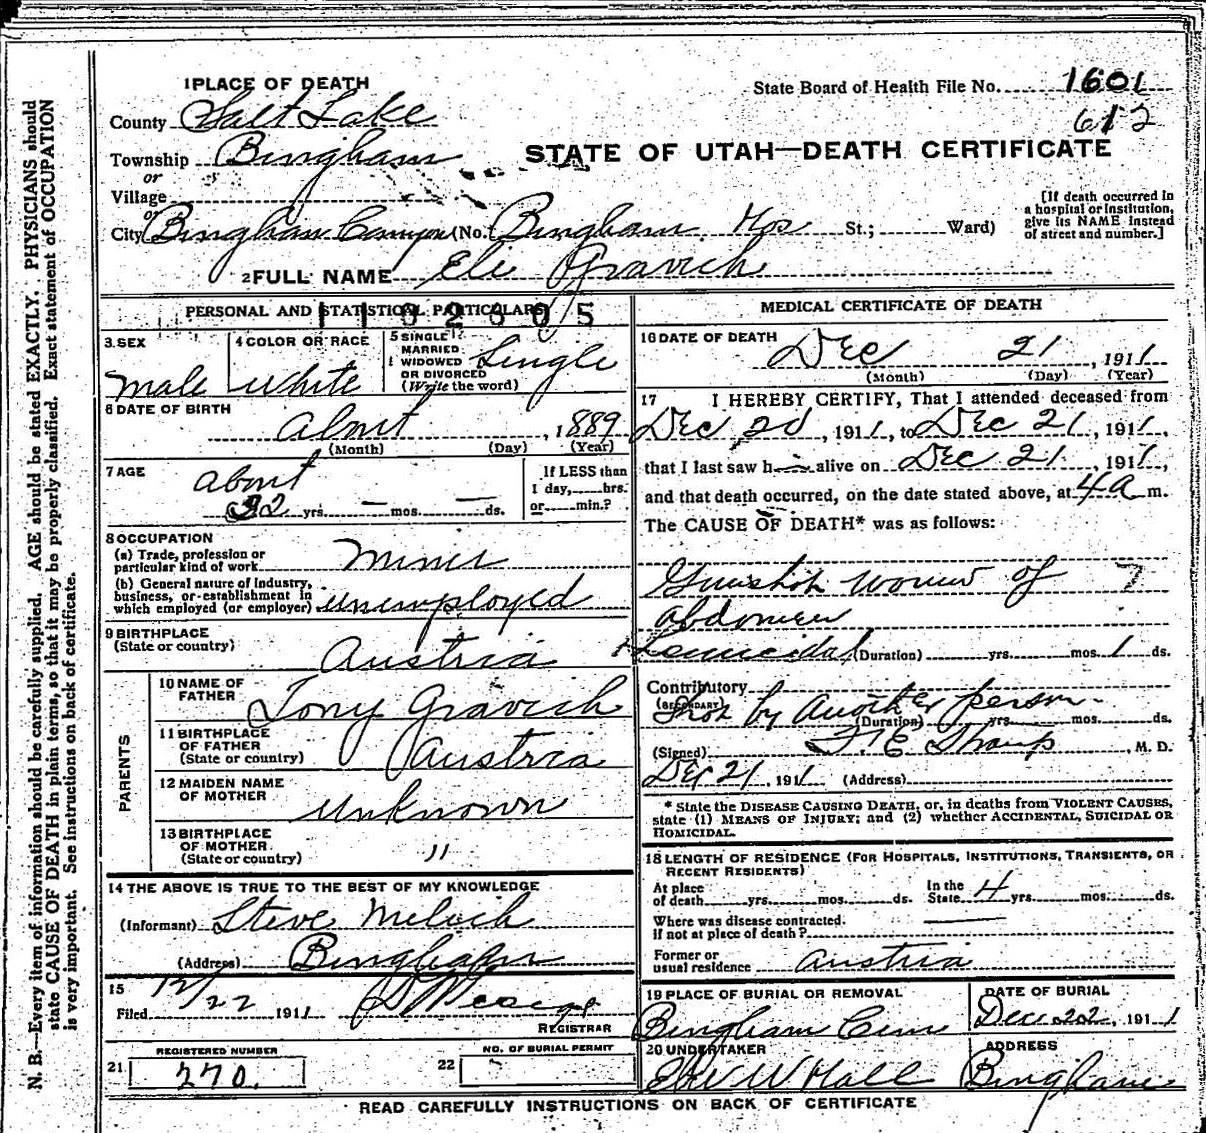 1 PLACE OF DEATH
State Board of Health File No. 1601
612
County Salt Lake
Township Bingham
STATE OF UTAH—DEATH CERTIFICATE
or
Village
or
City Bingham Canyon (No. Bingham Hos St.; Ward)
[If death occurred in a hospital or institution, give its NAME instead of street and number.]
2 FULL NAME Eli Gravich
PERSONAL AND STATISTICAL PARTICULARS
3 SEX
male
4 COLOR OR RACE
white
5 SINGLE
MARRIED
WIDOWED
OR DIVORCED
(Write the word)
Single
6 DATE OF BIRTH
about, 1889
(Month) (Day) (Year)
7 AGE
about
22 yrs. — mos. — ds.
If LESS than
1 day, hrs.
or min.?
8 OCCUPATION
(a) Trade, profession or
particular kind of work Miner
(b) General nature of industry,
business, or establishment in
which employed (or employer) unemployed
9 BIRTHPLACE
(State or country)
Austria
PARENTS
10 NAME OF
FATHER
Tony Gravich
11 BIRTHPLACE
OF FATHER
(State or country)
Austria
12 MAIDEN NAME
OF MOTHER
Unknown
13 BIRTHPLACE
OF MOTHER
(State or country)
"
14 THE ABOVE IS TRUE TO THE BEST OF MY KNOWLEDGE
(Informant) Steve
(Address) Bingham
15
Filed 12/22 1911
REGISTRAR
21 REGISTERED NUMBER
270.
22 NO. OF BURIAL PERMIT
MEDICAL CERTIFICATE OF DEATH
16 DATE OF DEATH
Dec 21, 1911
(Month) (Day) (Year)
17 I HEREBY CERTIFY, That I attended deceased from
Dec 20, 1911, to Dec 21, 1911,
that I last saw him alive on Dec 21, 1911,
and that death occurred, on the date stated above, at 4 a m.
The CAUSE OF DEATH* was as follows:
Gunshot wound of
abdomen
Homicidal (Duration) yrs. mos. 1 ds.
Contributory
(SECONDARY)
Shot by Another person.
(Duration) yrs. mos. ds.
(Signed) F. E. Straup, M. D.
Dec 21, 1911 (Address)
* State the DISEASE CAUSING DEATH, or, in deaths from VIOLENT CAUSES,
state (1) MEANS OF INJURY; and (2) whether ACCIDENTAL, SUICIDAL OR
HOMICIDAL.
18 LENGTH OF RESIDENCE (FOR HOSPITALS, INSTITUTIONS, TRANSIENTS, OR
RECENT RESIDENTS)
At place
of death yrs. mos. ds.
In the
State 4 yrs. mos. ds.
Where was disease contracted.
If not at place of death?
Former or
usual residence Austria
19 PLACE OF BURIAL OR REMOVAL
Bingham Cem
DATE OF BURIAL
Dec 22, 1911
20 UNDERTAKER
Eber W Hall
ADDRESS
Bingham
READ CAREFULLY INSTRUCTIONS ON BACK OF CERTIFICATE
N. B.—Every item of information should be carefully supplied. AGE should be stated EXACTLY. PHYSICIANS should
state CAUSE OF DEATH in plain terms, so that it may be properly classified. Exact statement of OCCUPATION
is very important. See instructions on back of certificate.